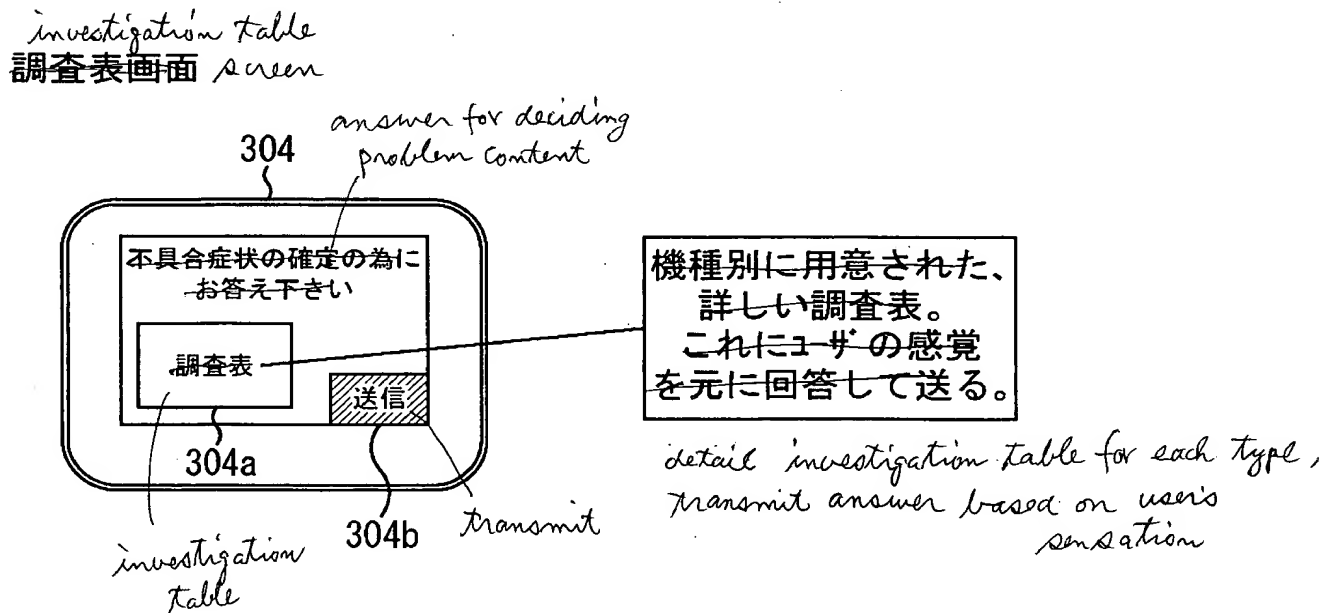 investigation table
調査表画面 screen
answer for deciding
problem content
304
不具合症状の確定の為に
お答え下さい
調査表
送信
304a
304b
transmit
investigation
table
機種別に用意された、
詳しい調査表。
これにﾕｰｻﾞの感覚
を元に回答して送る。
detail investigation table for each type,
transmit answer based on user's
sensation